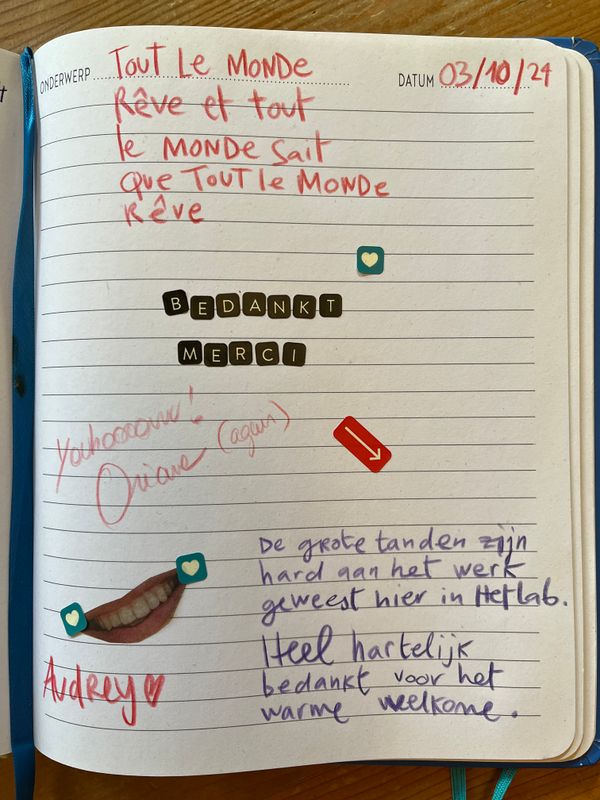 ONDERWERP TOUT LE MONDE DATUM 03/10/24
Rêve et tout
le MONDE sait
que TOUT le MONDE
Rêve
BEDANKT
MERCI
Oriane (again)
De grote tanden zijn
hard aan het werk
geweest hier in Het lab.
Heel hartelijk
bedankt voor het
warme welkome.
AUDREY